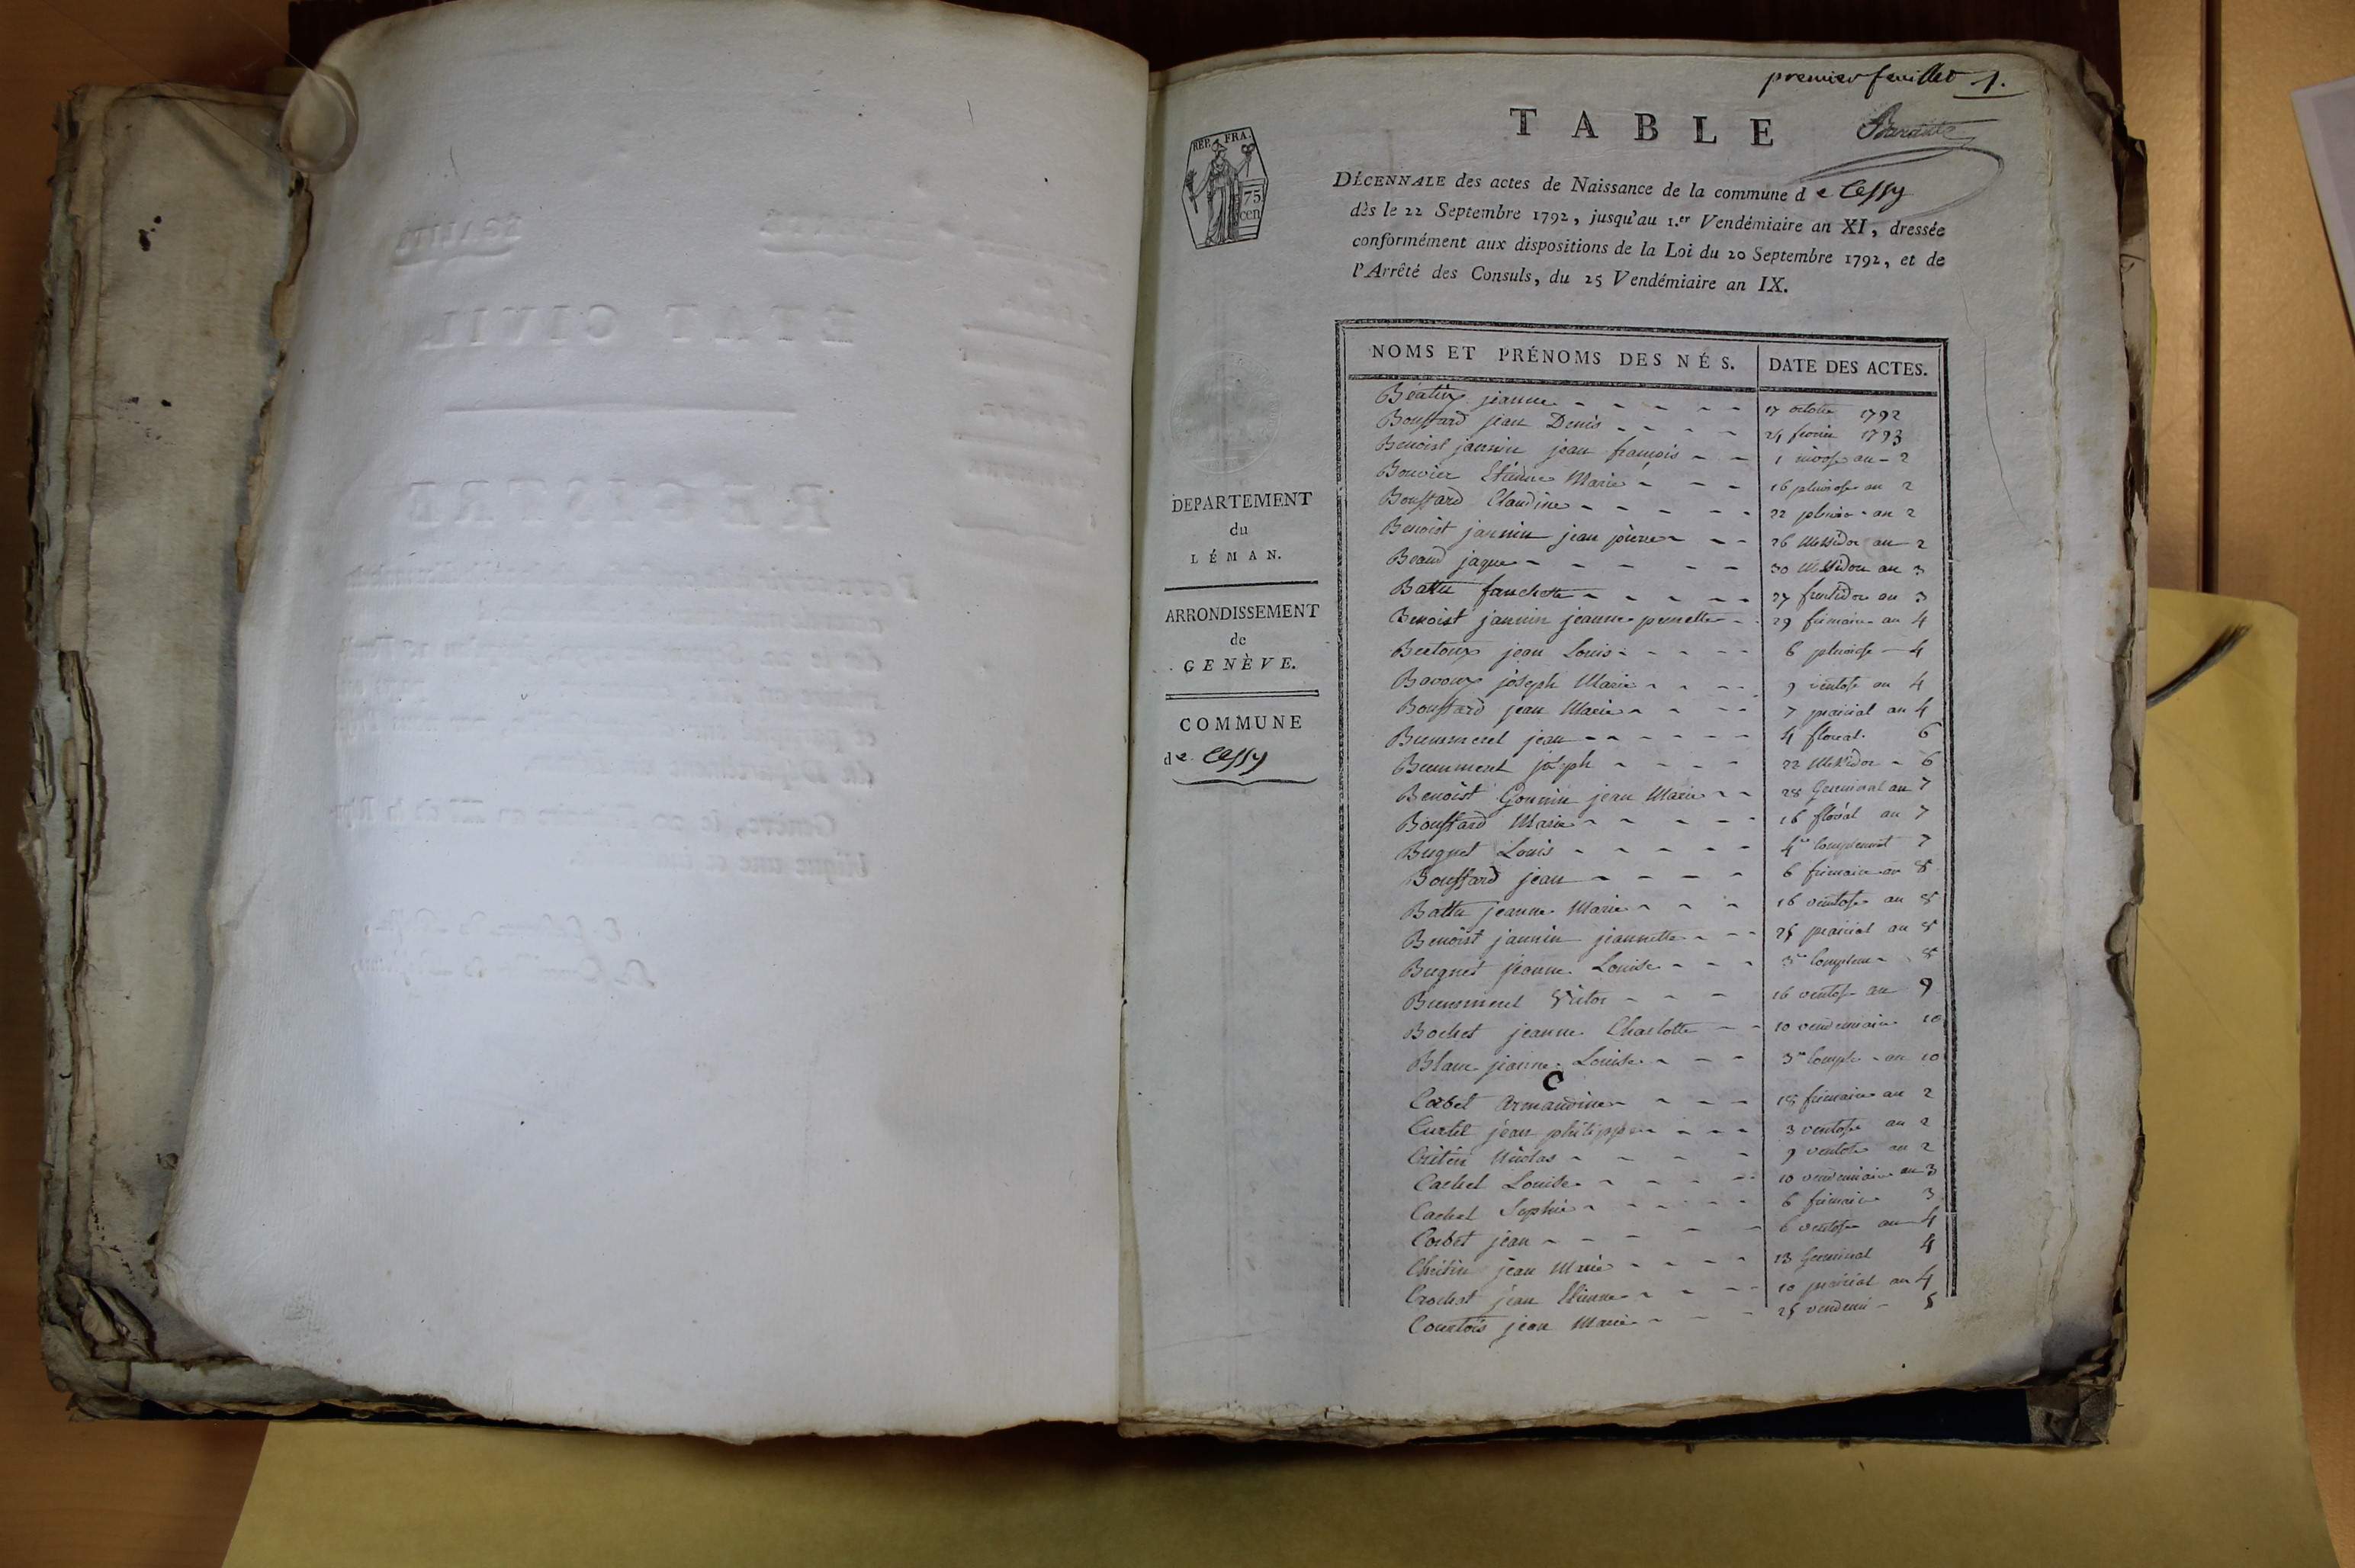 premier feuillet 1.
TABLE
REP. FRA.
75
cen
DÉCENNALE des actes de Naissance de la commune de Cessy
dès le 22 Septembre 1792, jusqu'au 1.er Vendémiaire an XI, dressée
conformément aux dispositions de la Loi du 20 Septembre 1792, et de
l'Arrêté des Consuls, du 25 Vendémiaire an IX.
DEPARTEMENT
du
LÉMAN.
ARRONDISSEMENT
de
GENÈVE.
COMMUNE
de Cessy
NOMS ET PRÉNOMS DES NÉS. DATE DES ACTES.
Béatrix jeanne 17 octobre 1792
Boussard jean Denis 24 fevrier 1793
Benoist jannin jean françois 1 nivose an 2
Bouvier Etienne Marie 16 pluviose an 2
Boussard Claudine 22 pluvio. an 2
Benoist jannin jean pierre 26 Messidor an 2
Beaud jaque 30 Messidor an 3
Battu fanchette 27 fructidor an 3
Benoist jannin jeanne pernette 29 frimaire an 4
jean Louis 6 pluviose 4
Bavoux joseph Marie 9 ventose an 4
Boussard jean Marie 7 prairial an 4
jean 4 floreal. 6
joseph 22 Messidor 6
Benoist Gonnin jean Marie 28 Germinal an 7
Boussard Marie 16 floréal an 7
Bugnet Louis 4me 7
Boussard jean 6 frimaire an 8
Battu jeanne Marie 16 ventose an 8
Benoist jannin jeannette 25 prairial an 8
Bugnet jeanne Louise 3me 8
Victor 16 ventose an 9
Bochet jeanne Charlotte 10 vendemiaire 10
Blanc jeanne Louise 3me an 10
C
Corbet Armandine 18 frimaire an 2
Curtil jean philippe 3 ventose an 2
Nicolas 9 ventose an 2
Cachet Louise 10 vendemiaire an 3
Cachat Sophie 6 frimaire 3
Corbet jean 6 ventose an 4
jean Marie 13 Germinal 4
Crochat jean Etienne 10 prairial an 4
Courtois jean Marie 25 vendemi 5